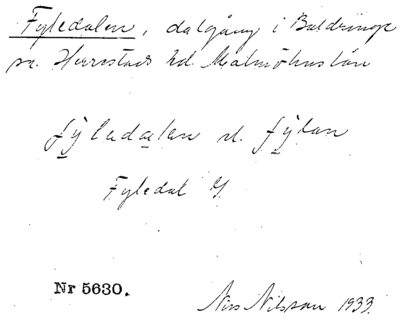 Fyledalen, dalgång i Baldringe
sn. Herrestads hd Malmöhus län
fyledalen el. fylan
Fyledal G.
Nr 5630.
Nils Nilsson 1933.